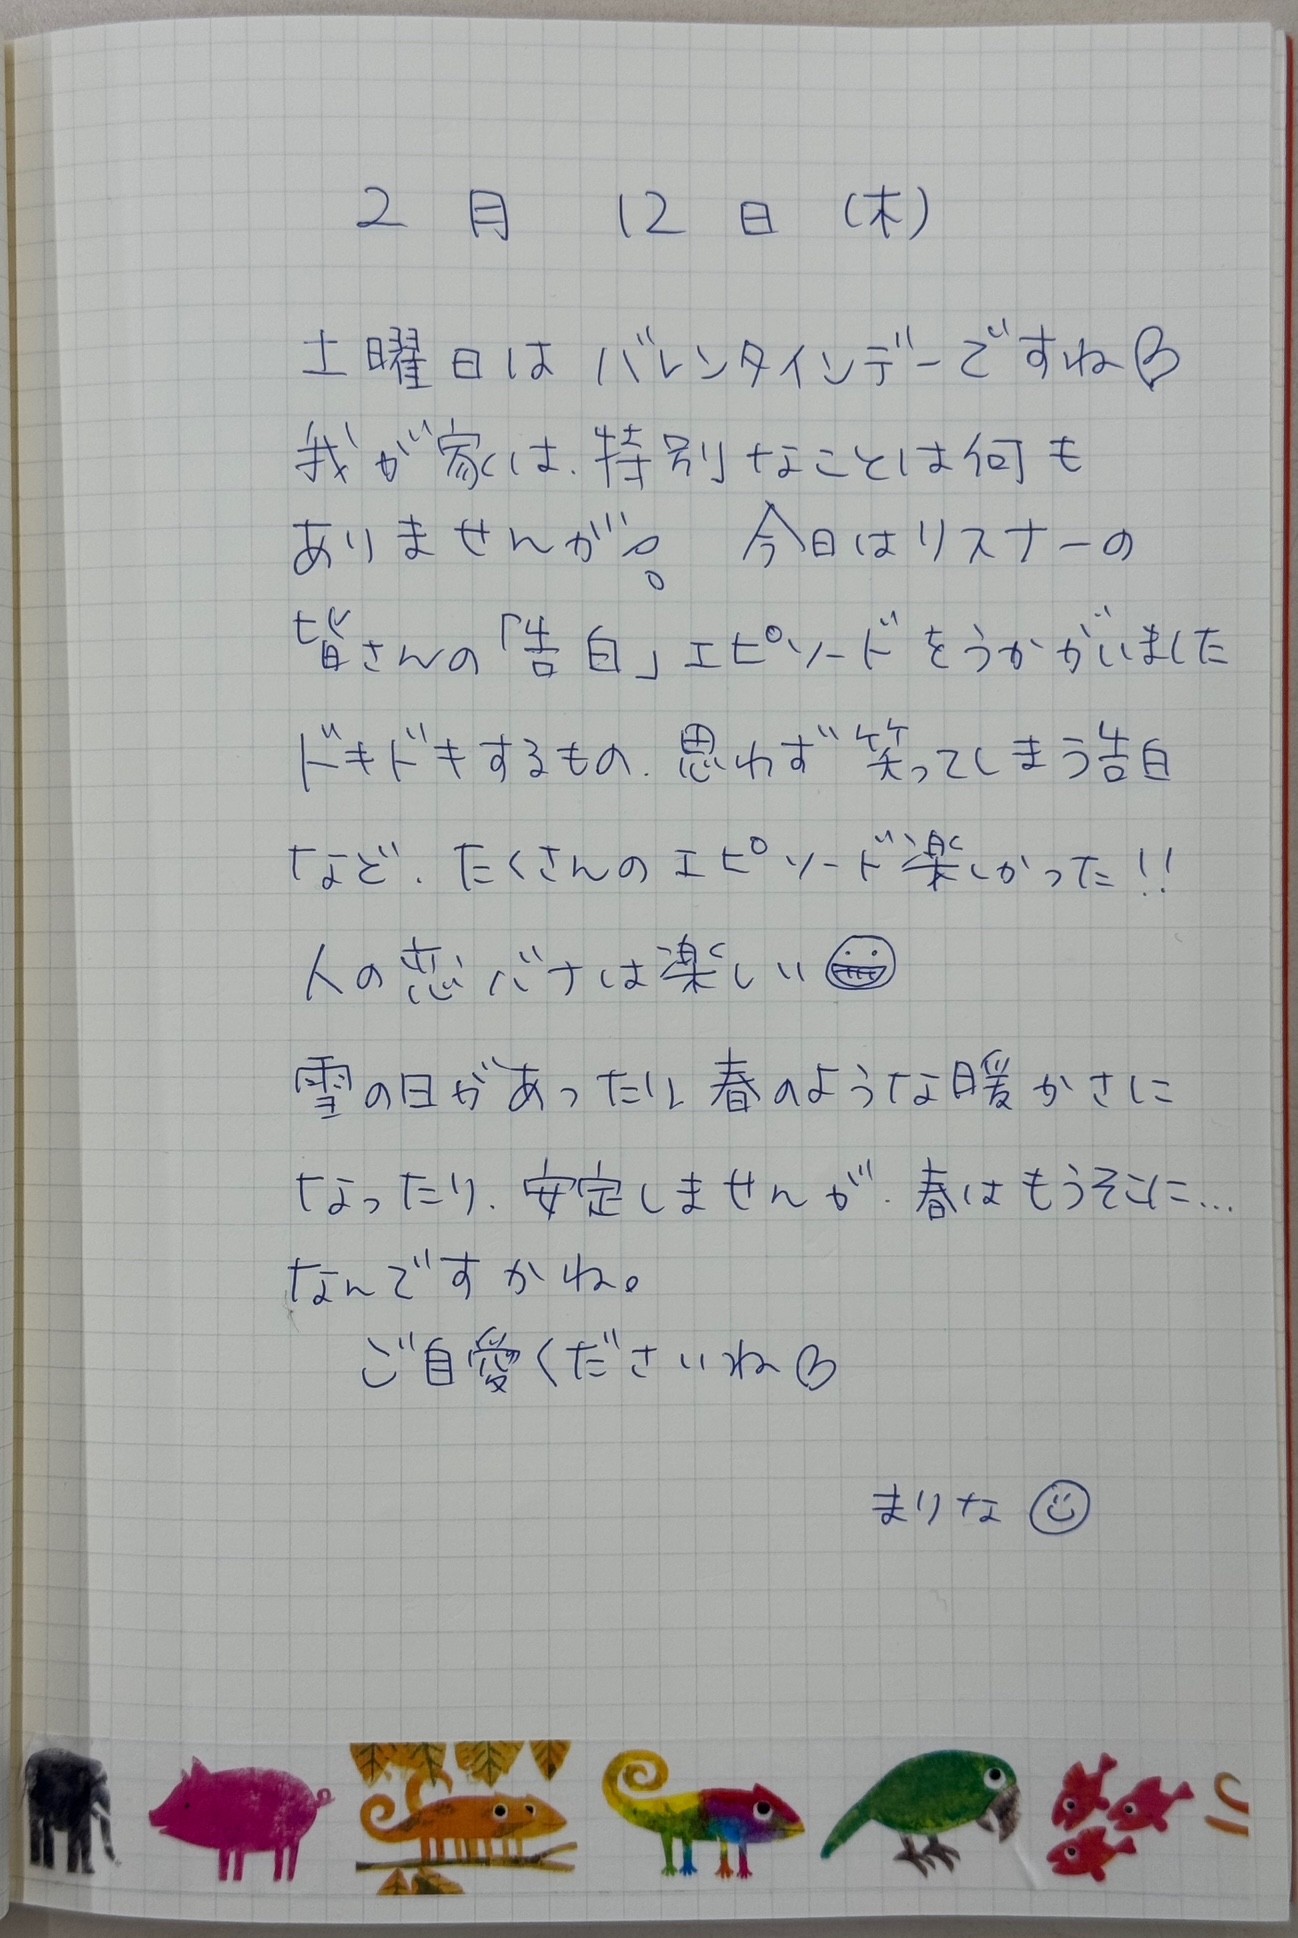 2月 12日 (木)
土曜日はバレンタインデーですね♡
我が家は、特別なことは何も
ありませんが。 今日はリスナーの
皆さんの「告白」エピソードをうかがいました
ドキドキするもの、思わず笑ってしまう告白
など、たくさんのエピソード楽しかった!!
人の恋バナは楽しい
雪の日があったり、春のような暖かさに
なったり、安定しませんが、春はもうそこに…
なんですかね。
ご自愛くださいね♡
まりな